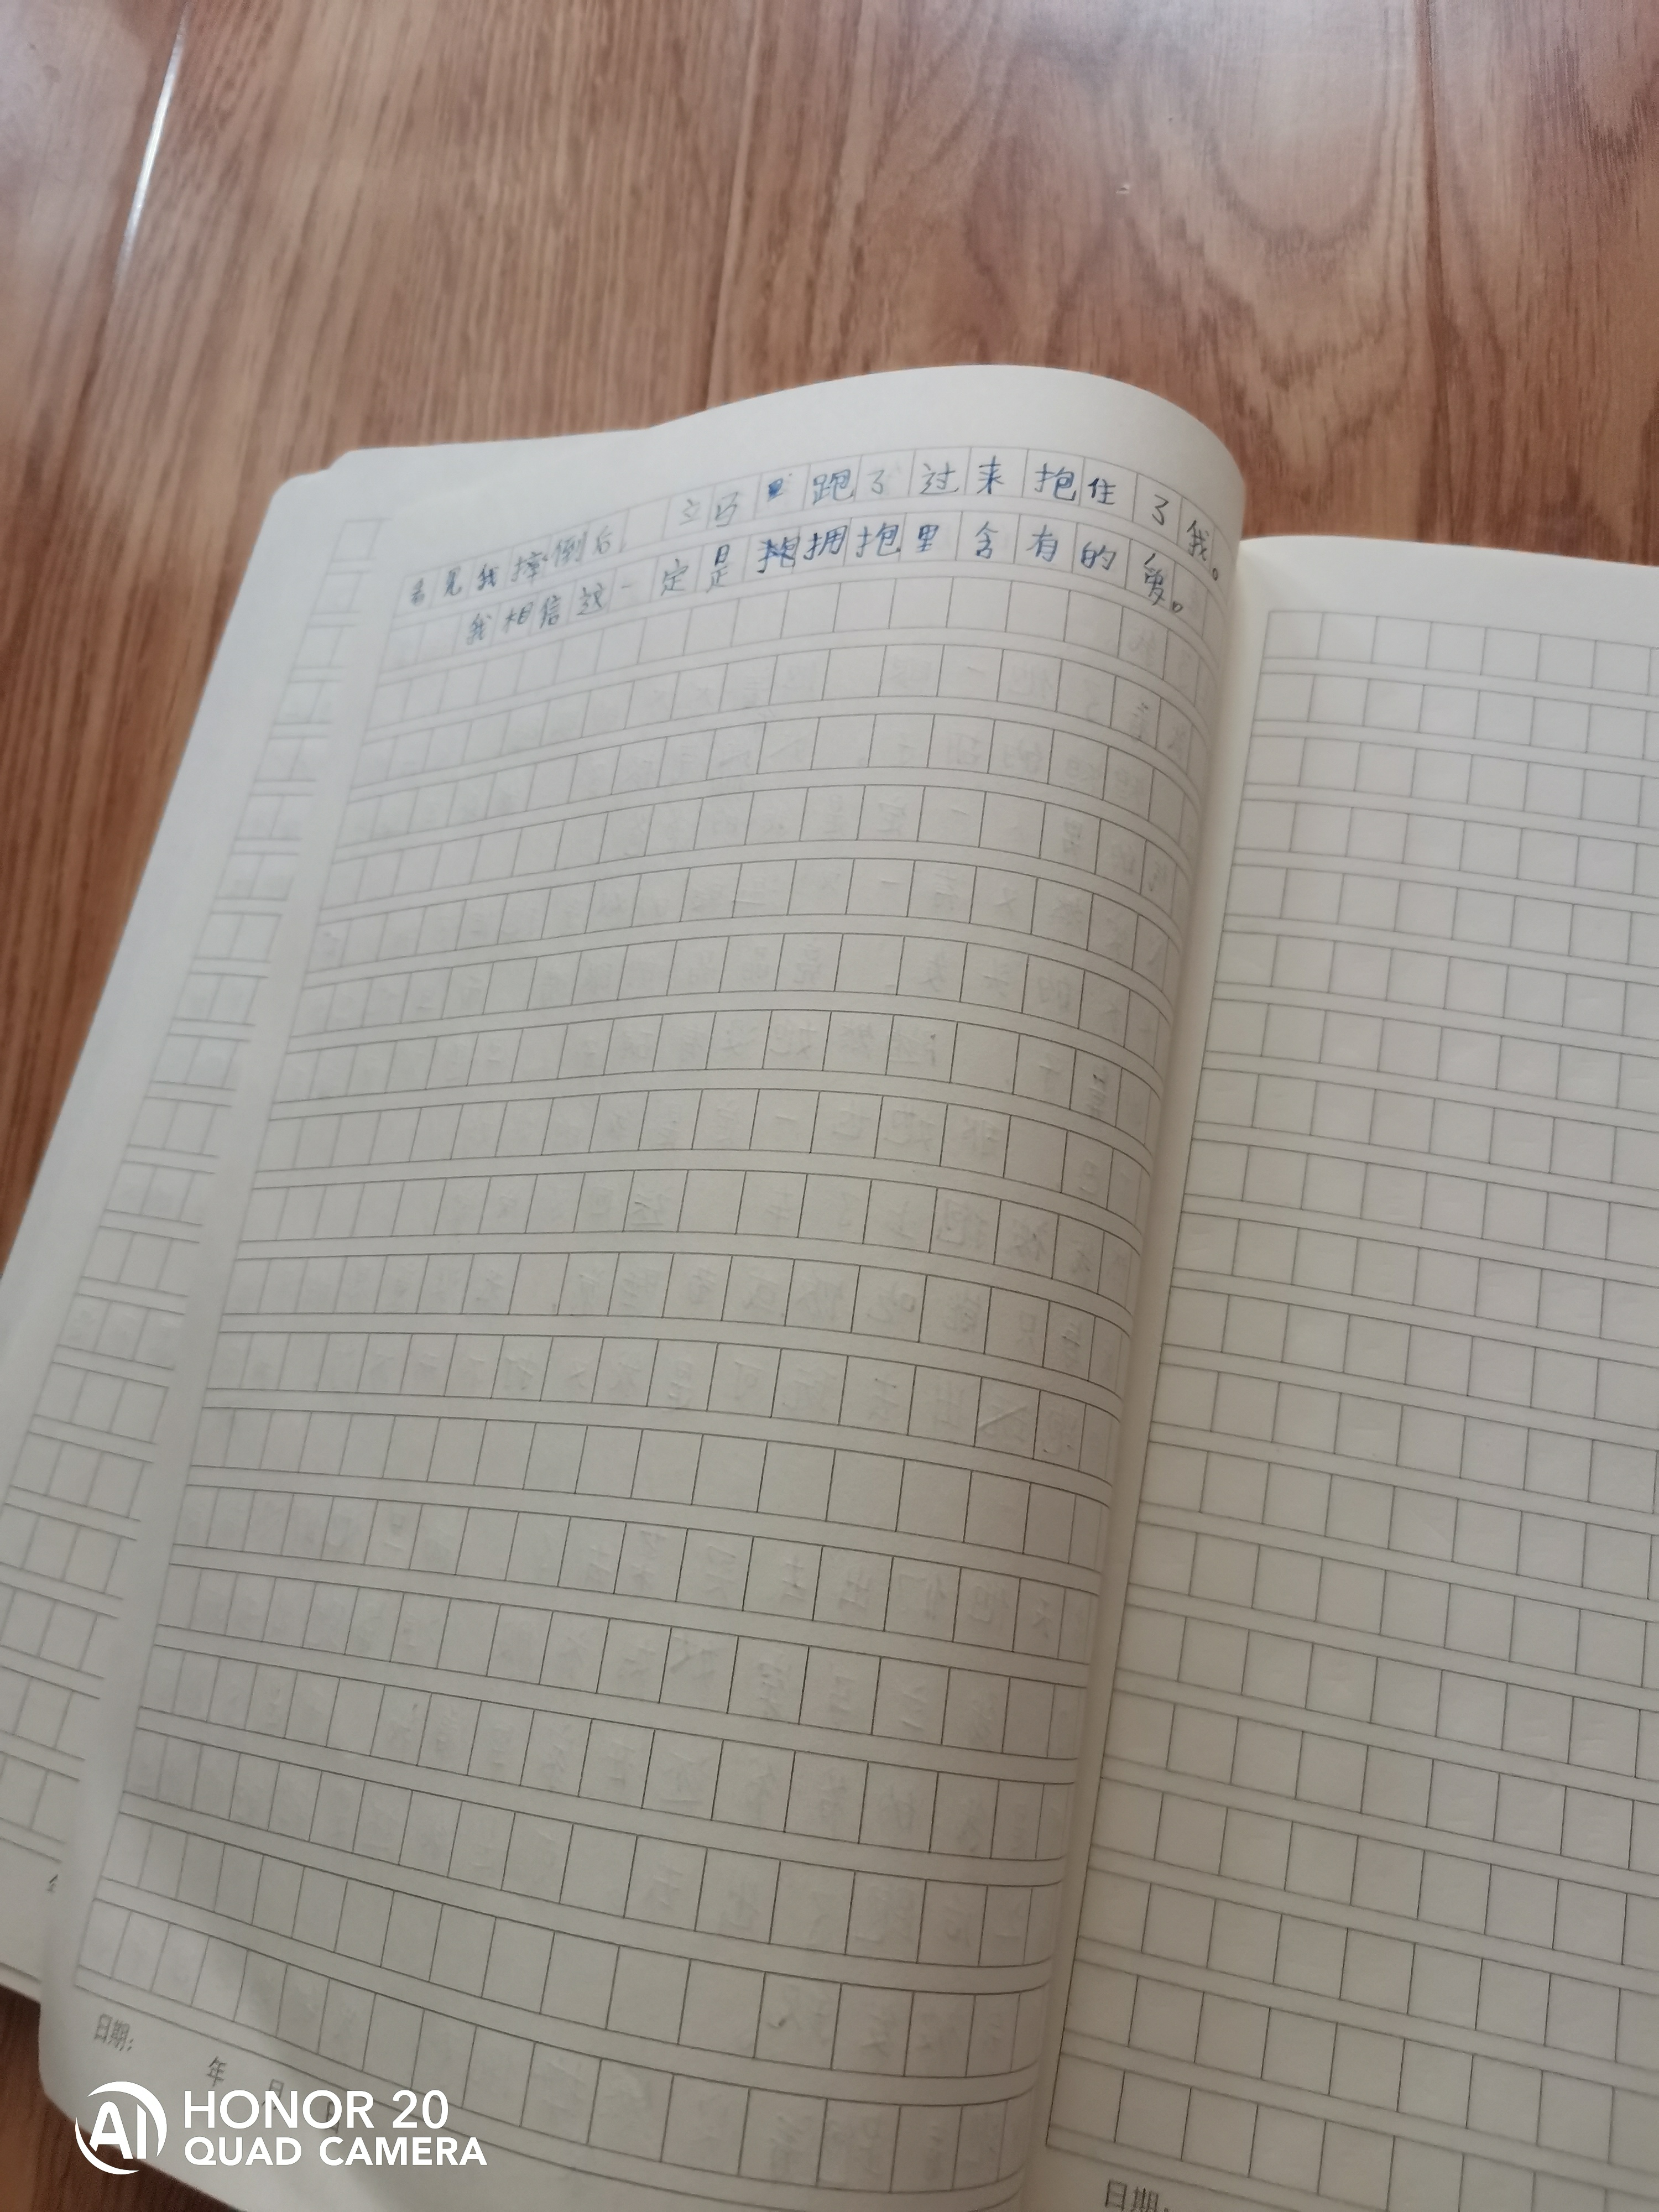 看见我摔倒后，立马跑了过来抱住了我。
我相信这一定是拥抱里含有的爱。
日期: 年 月 日
日期:
HONOR 20
QUAD CAMERA